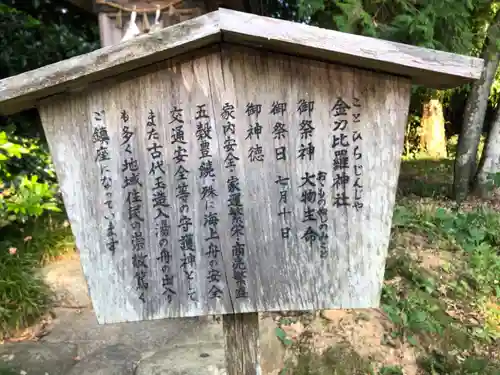 ことひらじんじゃ
金刀比羅神社
おおものぬしのみこと
御祭神 大物主命
御祭日 七月十日
御神徳
家内安全・家運繁栄・商売繁盛
五穀豊穣・殊に海上安全
交通安全等の守護神として
また古代玉造入湯の舟の出入り
も多く地域住民の崇敬篤く
ご鎮座になっています